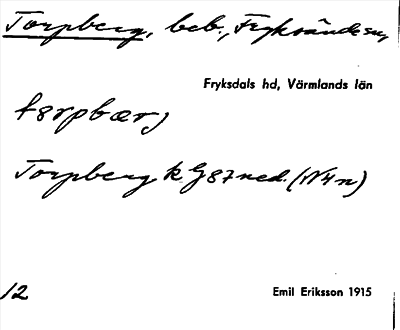 Torpberg, beb., Fryksände sn,
Fryksdals hd, Värmlands län
tɔrpbærj
Torpberg k G87 ned. (N4n)
12
Emil Eriksson 1915